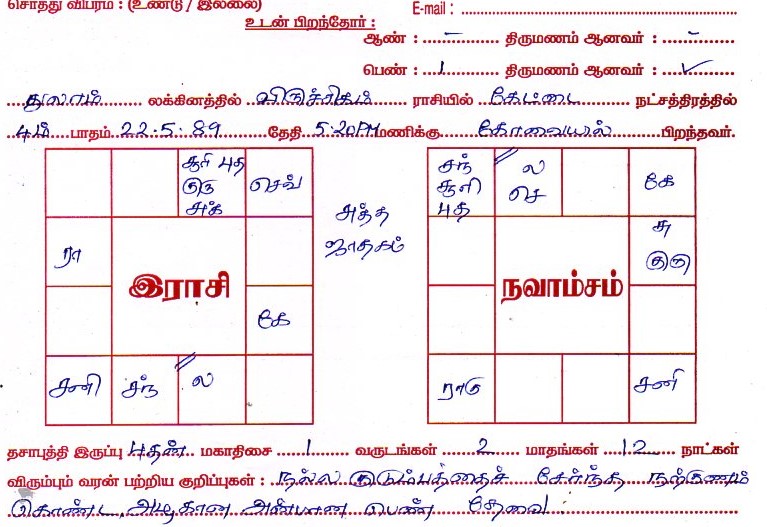 சொத்து விபரம் : (உண்டு / இல்லை)
E-mail :
உடன் பிறந்தோர் :
ஆண் : – திருமணம் ஆனவர் : –
பெண் : 1 திருமணம் ஆனவர் : ✓
துலாம் லக்கினத்தில் விருச்சிகம் ராசியில் கேட்டை நட்சத்திரத்தில்
4ம் பாதம் 22.5.89 தேதி 5.20PM மணிக்கு கோவையில் பிறந்தவர்.
சூரி புத
குரு
சுக்
செவ்
ரா
இராசி
கே
சனி
சந்
ல
அத்த
ஜாதகம்
சந்
சூரி
புத
ல
செ
கே
சு
குரு
நவாம்சம்
ராகு
சனி
தசாபுத்தி இருப்பு புதன் மகாதிசை 1 வருடங்கள் 2 மாதங்கள் 12 நாட்கள்
விரும்பும் வரன் பற்றிய குறிப்புகள் : நல்ல குடும்பத்தைச் சேர்ந்த நற்குணம்
கொண்ட, அழகான அன்பான பெண் தேவை.